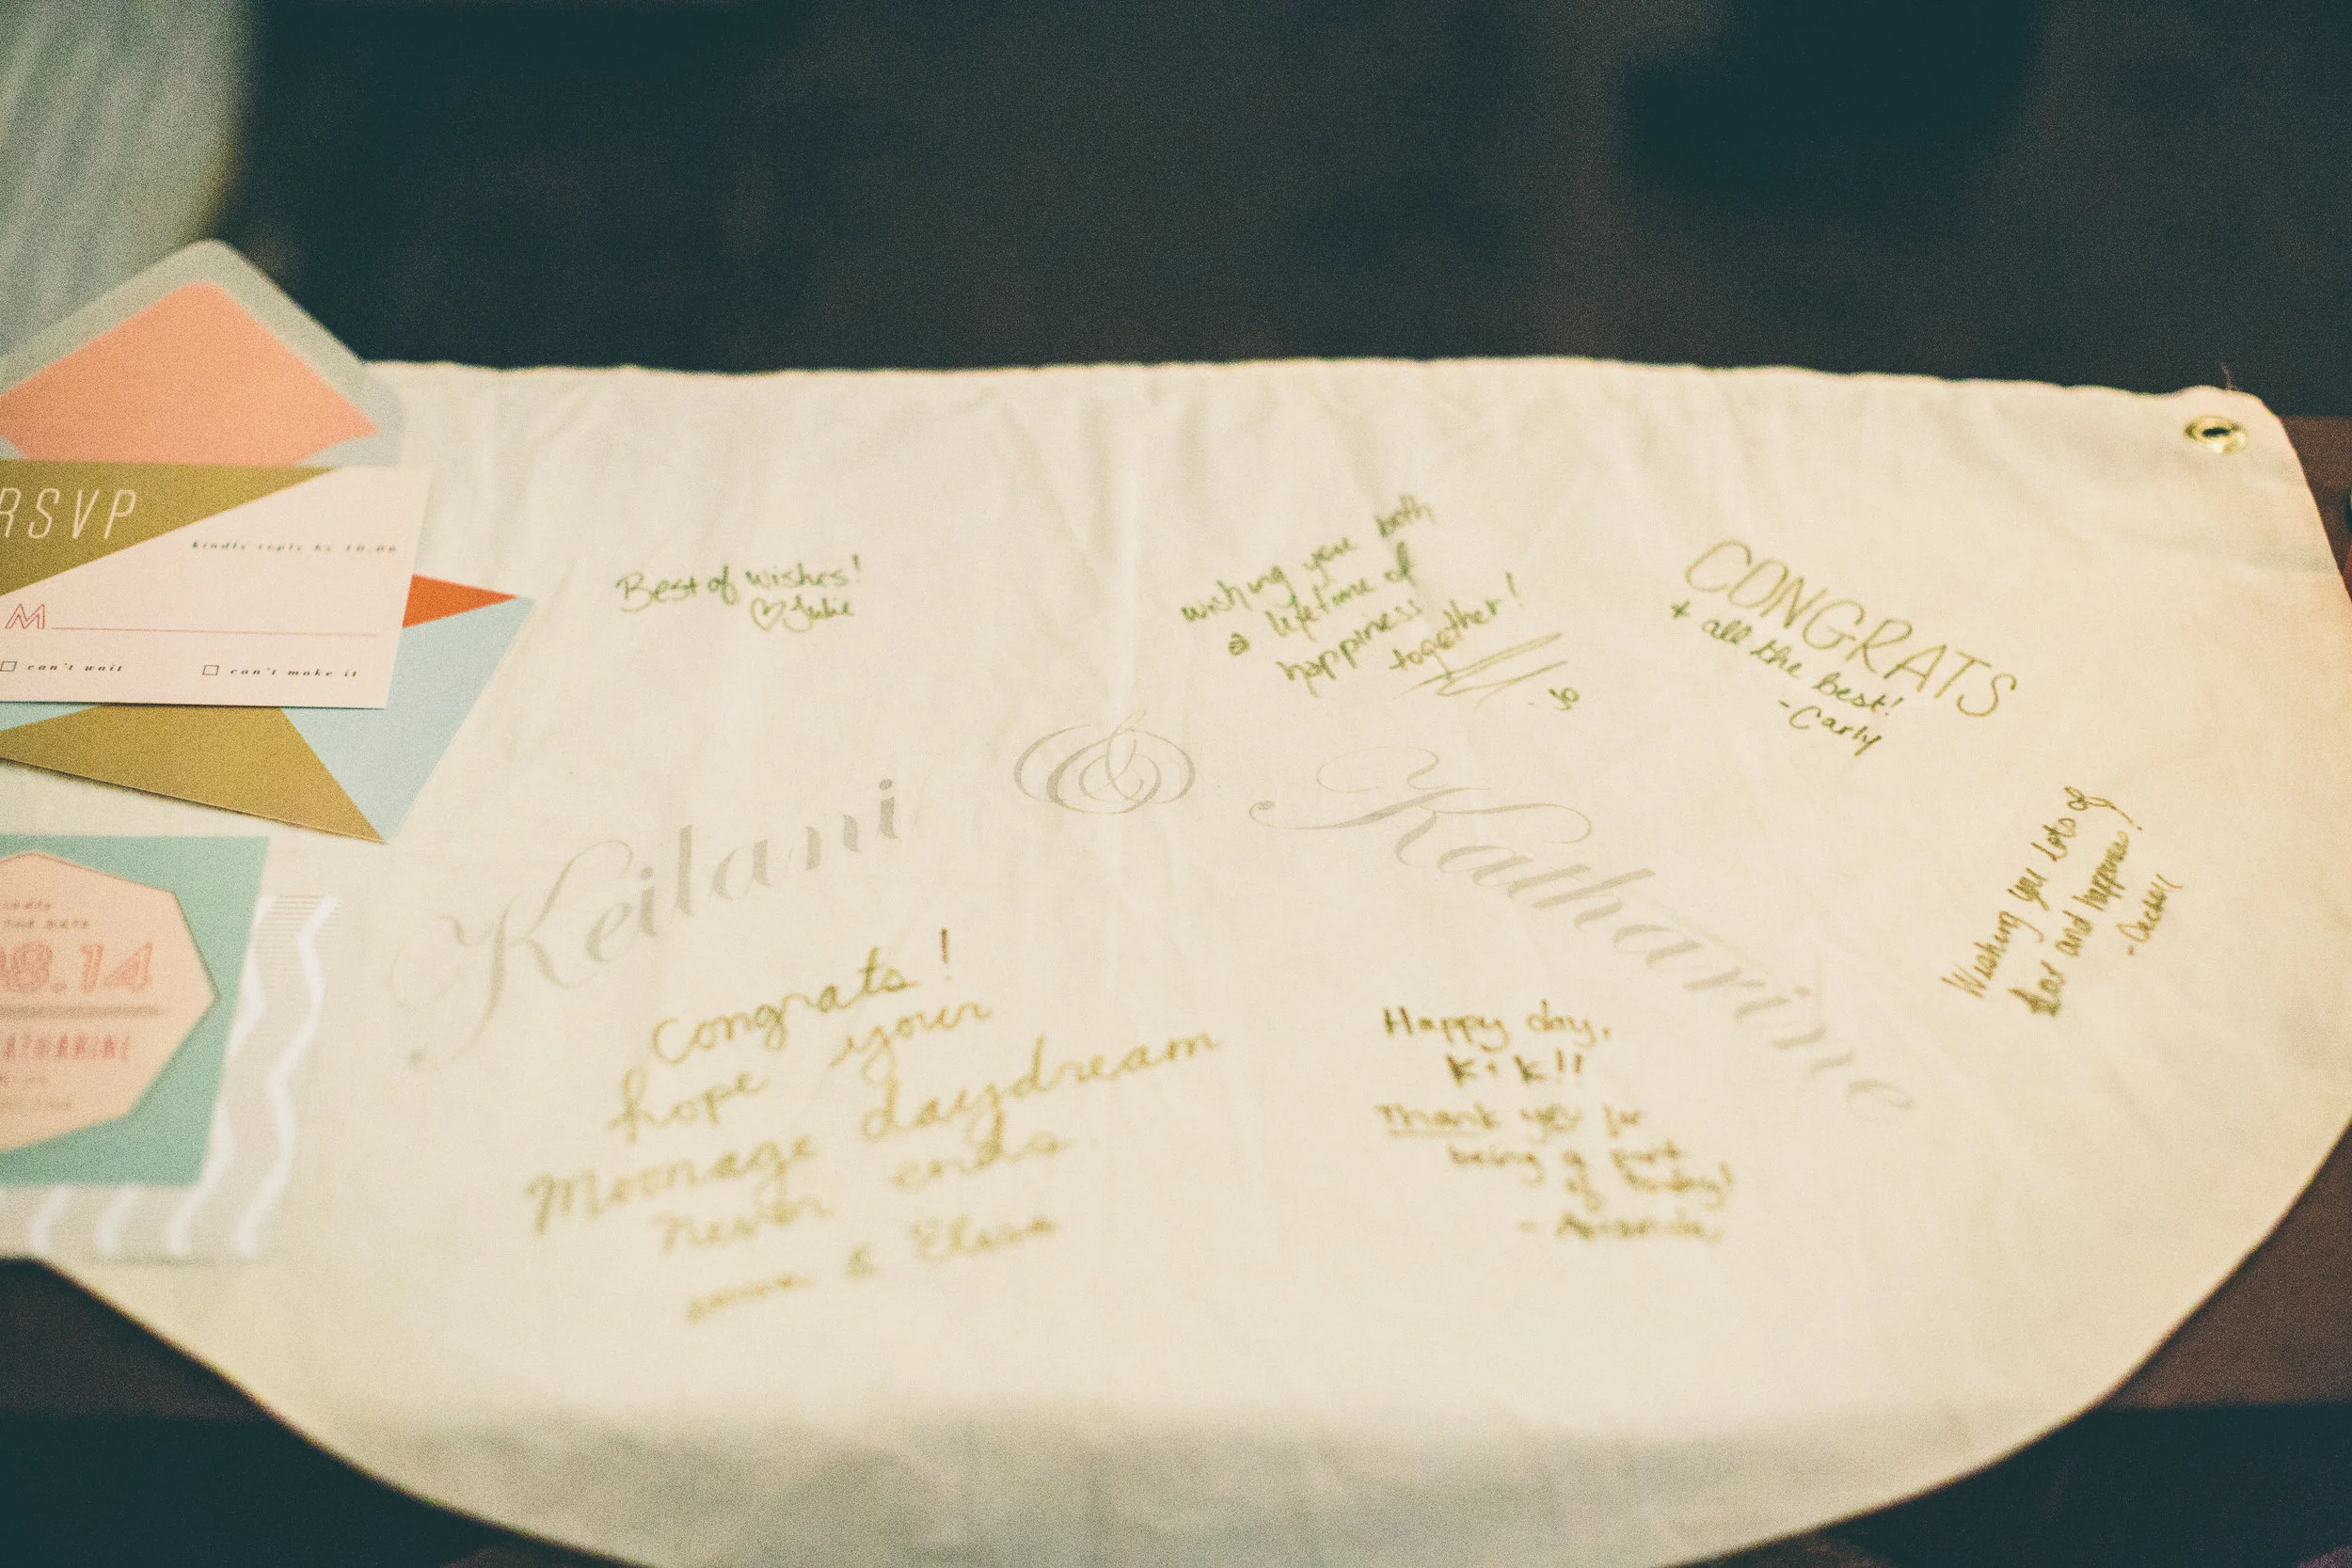 RSVP
kindly reply by 10.06
M
can't wait
can't make it
08.14
KATHARINE
Best of wishes!
♡ Julie
wishing you both
a lifetime of
happiness
together!
CONGRATS
+ all the best!
-Carly
Keilani & Katharine
Wishing you lots of
love and happiness!
Congrats!
hope your
Moonage daydream
never ends.
& Elissa
Happy day,
K + K!!
Thank you for
being a part
of today!
- Amanda